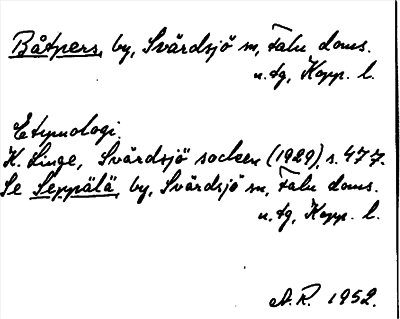 Båtpers, by, Svärdsjö sn, Falu doms.
u. tg, Kopp. l.
Etymologi.
K. Linge, Svärdsjö socken (1929), s. 477.
Se Seppälä, by, Svärdsjö sn, Falu doms.
u. tg, Kopp. l.
A.R. 1952.